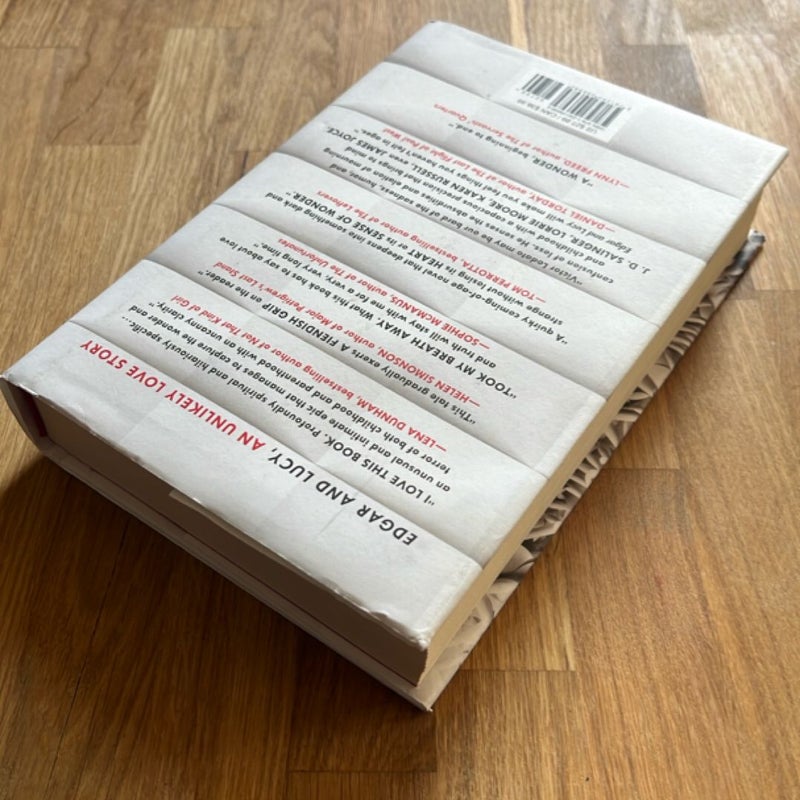 EDGAR AND LUCY, AN UNLIKELY LOVE STORY
"I LOVE THIS BOOK. Profoundly spiritual and hilariously specific...
an unusual and intimate epic that manages to capture the wonder and
terror of both childhood and parenthood with an uncanny clarity."
—LENA DUNHAM, bestselling author of Not That Kind of Girl
"This tale gradually exerts A FIENDISH GRIP on the reader."
—HELEN SIMONSON, author of Major Pettigrew's Last Stand
"TOOK MY BREATH AWAY. What this book has to say about love
and truth will stay with me for a very, very long time."
—SOPHIE MCMANUS, author of The Unfortunates
"A quirky coming-of-age novel that deepens into something dark and
strange without losing its HEART or its SENSE OF WONDER."
—TOM PERROTTA, bestselling author of The Leftovers
"Victor Lodato may be our bard of the sadness, humor, and
confusion of loss. He renders the absurdities and elation of mourning
and childhood with a capacious precision that brings to mind
J. D. SALINGER, LORRIE MOORE, KAREN RUSSELL, even JAMES JOYCE.
Edgar and Lucy will make you feel things you haven't felt in ages."
—DANIEL TORDAY, author of The Last Flight of Poxl West
"A WONDER, beginning to end."
—LYNN FREED, author of The Servants' Quarters